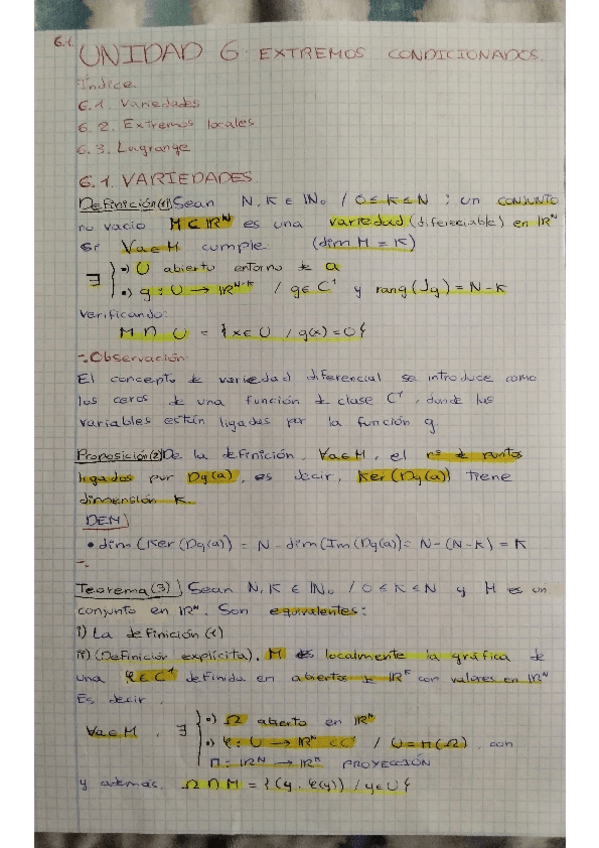 6.1.
UNIDAD 6. EXTREMOS CONDICIONADOS.
Índice
6.1. Variedades
6.2. Extremos locales
6.3. Lagrange
6.1. VARIEDADES
Definición(1) Sean N, K ∈ IN₀ / 0 ≤ K ≤ N ; un CONJUNTO
no vacío M ⊂ IRᴺ es una variedad (diferenciable) en IRᴺ
si ∀a∈M cumple (dim M = K)
∃ •) U abierto entorno de a
•) g : U → IRᴺ⁻ᴷ / g∈C¹ y rang(Jg) = N-K
Verificando:
M ∩ U = {x∈U / g(x)=0}
-. Observación
El concepto de variedad diferencial se introduce como
los ceros de una función de clase C¹, donde las
variables están ligadas por la función g.
Proposición(2) De la definición, ∀a∈M, el nº de puntos
ligados por Dg(a), es decir, Ker(Dg(a)) tiene
dimensión K.
DEM)
• dim(Ker(Dg(a))) = N - dim(Im(Dg(a)) = N-(N-K) = K
-.
Teorema(3) Sean N, K ∈ IN₀ / 0 ≤ K ≤ N y M es un
conjunto en IRᴺ. Son equivalentes:
i) La definición (1)
ii) (Definición explícita). M es localmente la gráfica de
una φ∈C¹ definida en abiertos de IRᴷ con valores en IRᴺ
Es decir,
∀a∈M, ∃ •) Ω abierto en IRᴺ
•) φ : U → IRᴺ ∈ C¹ / U = Π(Ω), con
Π : IRᴺ → IRᴷ PROYECCIÓN
y además, Ω ∩ M = {(y, φ(y)) / y∈U}